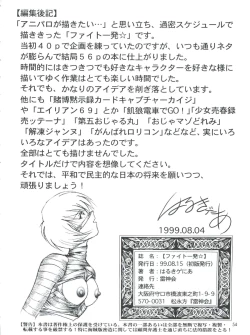 【編集後記】
「アニパロが描きたい…」と思い立ち、過密スケジュールで
描ききった「ファイト一発☆」です。
当初４０ｐで企画を練っていたのですが、いつも通りネタ
が膨らんで結局５６ｐの本に仕上がりました。
時間的にはきつきつでも好きなキャラクターを好きな様に
描いてゆく作業はとても楽しい時間でした。
それでも、かなりのアイデアを削ぎ落としています。
他にも「賭博黙示録カードキャプターカイジ」
や「エイリアン６９」とか「餓狼電車でＧＯ！」「少女売春録
ッテーナ」「第五おじゃる丸」「おじゃマゾどれみ」
「解凍ジャンヌ」「がんばれロリコン」などなど、実にいろ
いろなアイデアはあったのです。
全部はとても描けませんでした。
タイトルだけで内容を想像してください。
それでは、平和で民主的な日本の将来を願いつつ、
頑張りましょう！
はるきゲにあ
1999.08.04
誌 名：【ファイト一発☆】
発行日：99.08.15（初版発行）
著 者：はるきゲにあ
発行者：【雷神会】
連絡先
大阪府守口市橋波東之町1-9-9
〒570-0031 松永方『雷神会』